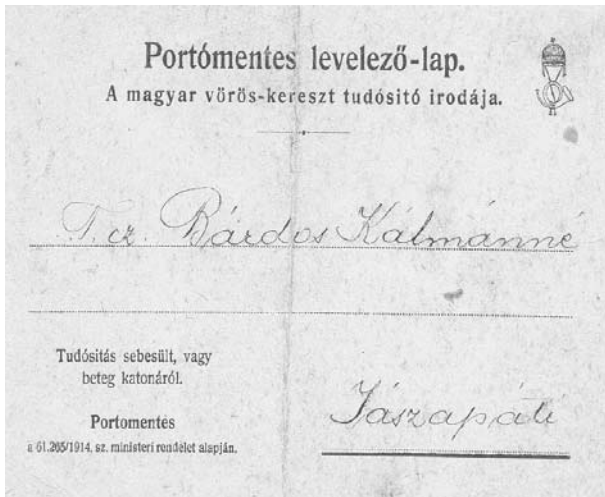 Portómentes levelező-lap.
A magyar vörös-kereszt tudósitó irodája.
T. cz. Bárdos Kálmánné
Tudósitás sebesült, vagy
beteg katonáról.
Jászapáti
Portomentés
a 61.265/1914. sz. ministeri rendelet alapján.